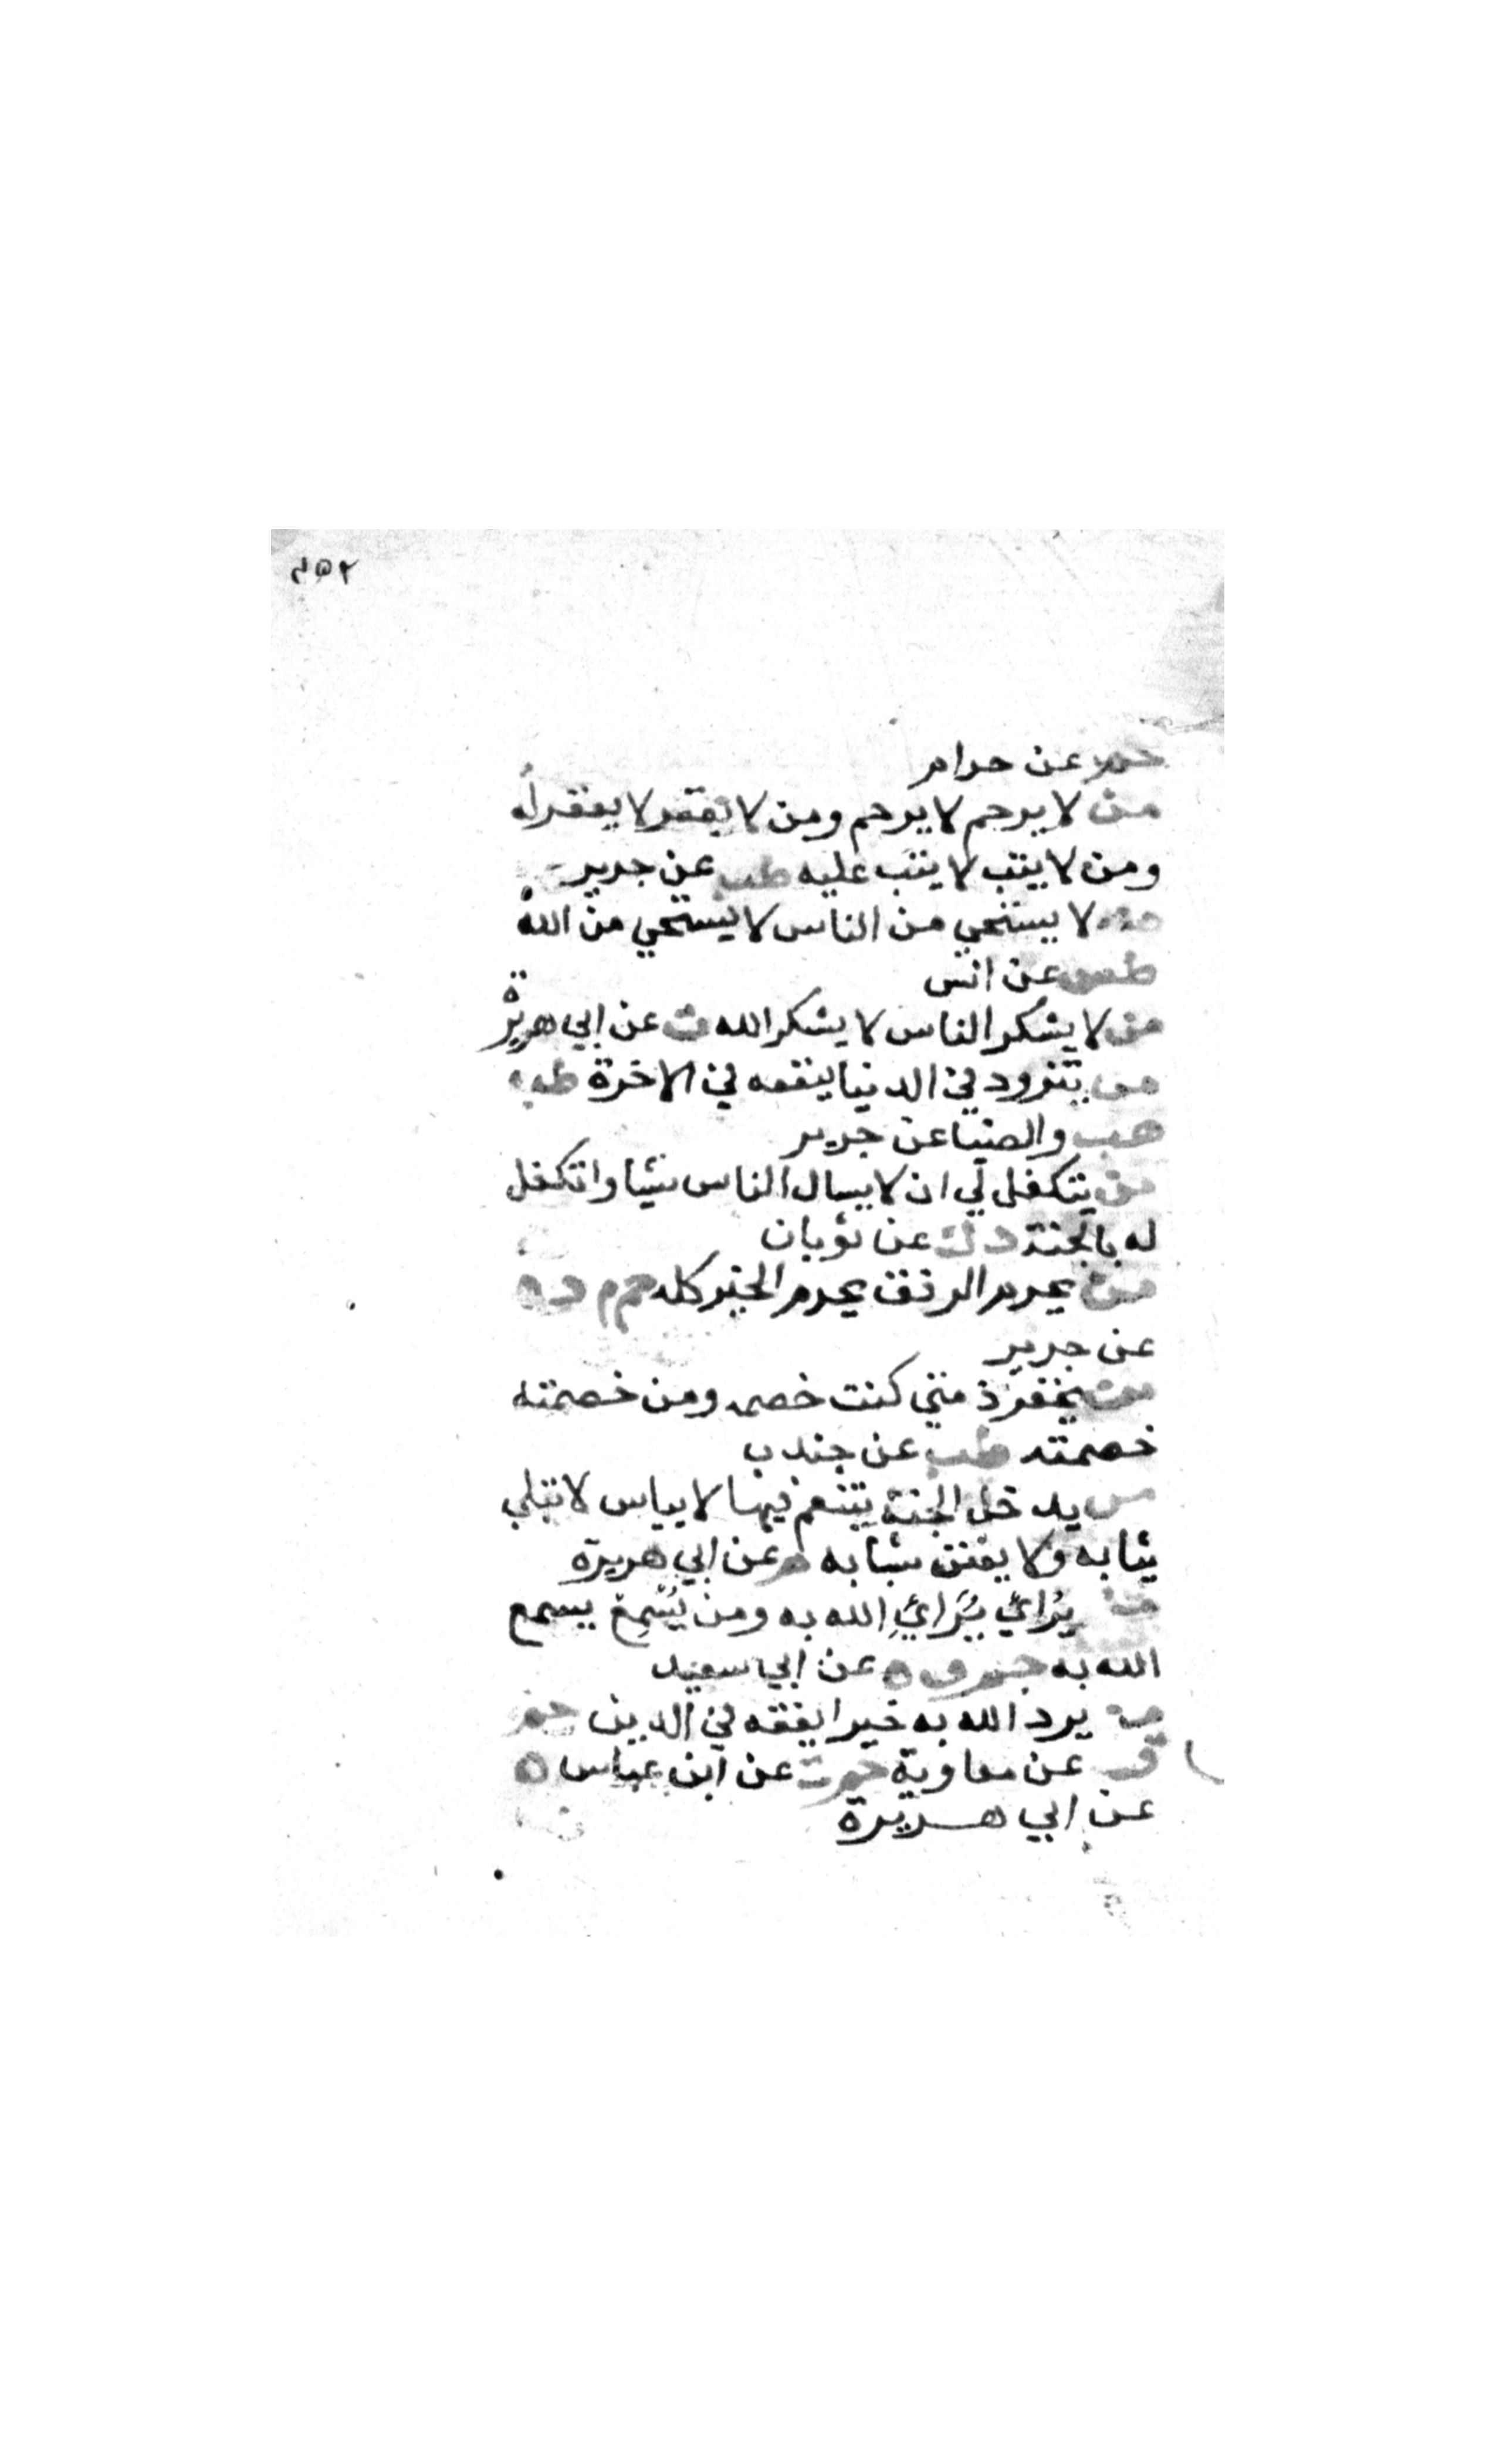 ٢٥٢
حم عن حرام
من لا يرحم لا يرحم ومن لا يغفر لا يغفر له
ومن لا يتب لا يتب عليه طب عن جرير
من لا يستحي من الناس لا يستحي من الله
طس عن انس
من لا يشكر الناس لا يشكر الله ت عن ابي هريرة
من يتزود في الدنيا ينفعه في الاخرة طب
هب والضيا عن جرير
من يتكفل لي ان لا يسال الناس شيا واتكفل
له بالجنة د ك عن ثوبان
من يحرم الرفق يحرم الخير كله حم م د ه
عن جرير
من يخفر ذمتي كنت خصمه ومن خصمته
خصمته طب عن جندب
من يدخل الجنة يتنعم فيها لا يياس لا تبلي
ثيابه ولا يفنى شبابه م عن ابي هريرة
من يُرائي يُرائي الله به ومن يُسَمِع يسمع
الله به حم ت ه عن ابي سعيد
من يرد الله به خيرا يفقه في الدين حم
ق عن معاوية حم ت عن ابن عباس ه
عن ابي هريرة